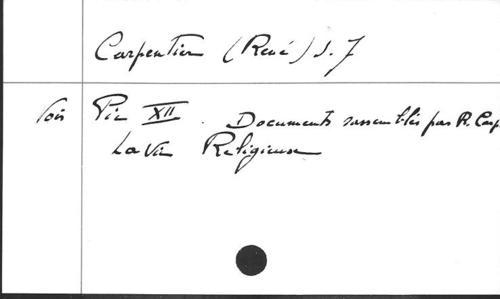 Carpentier (René) s. J
Voir Pie XII. Documents rassemblés par R. Carp
La Vie Religieuse